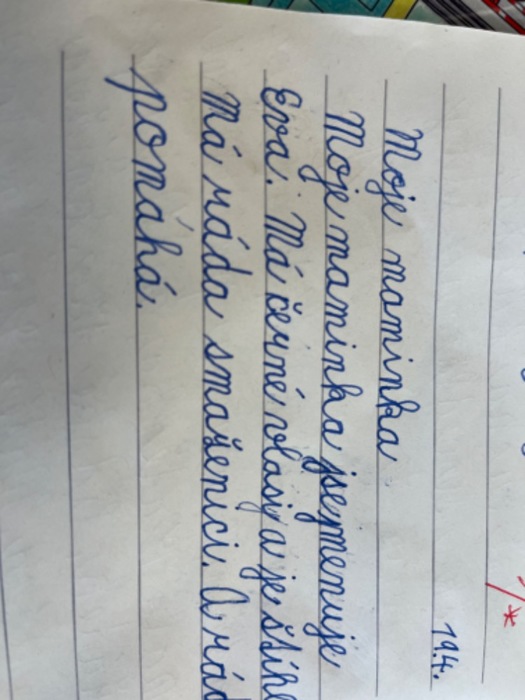 19.4.
Moje maminka
Moje maminka jsejmenuje
Eva. Má černé vlasy a je štíhl
Má ráda smaženici. A rád
pomáhá.